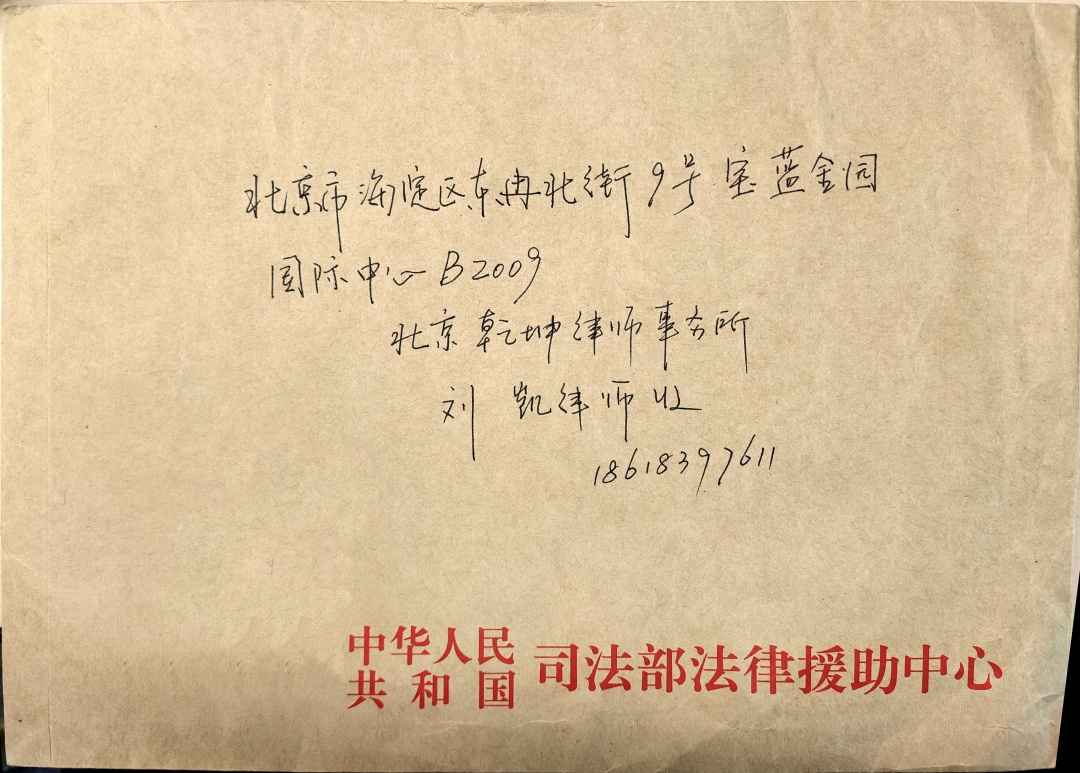 北京市海淀区东冉北街9号宝蓝金园
国际中心B2009
北京乾坤律师事务所
刘凯律师收
18618397611
中华人民共和国 司法部法律援助中心